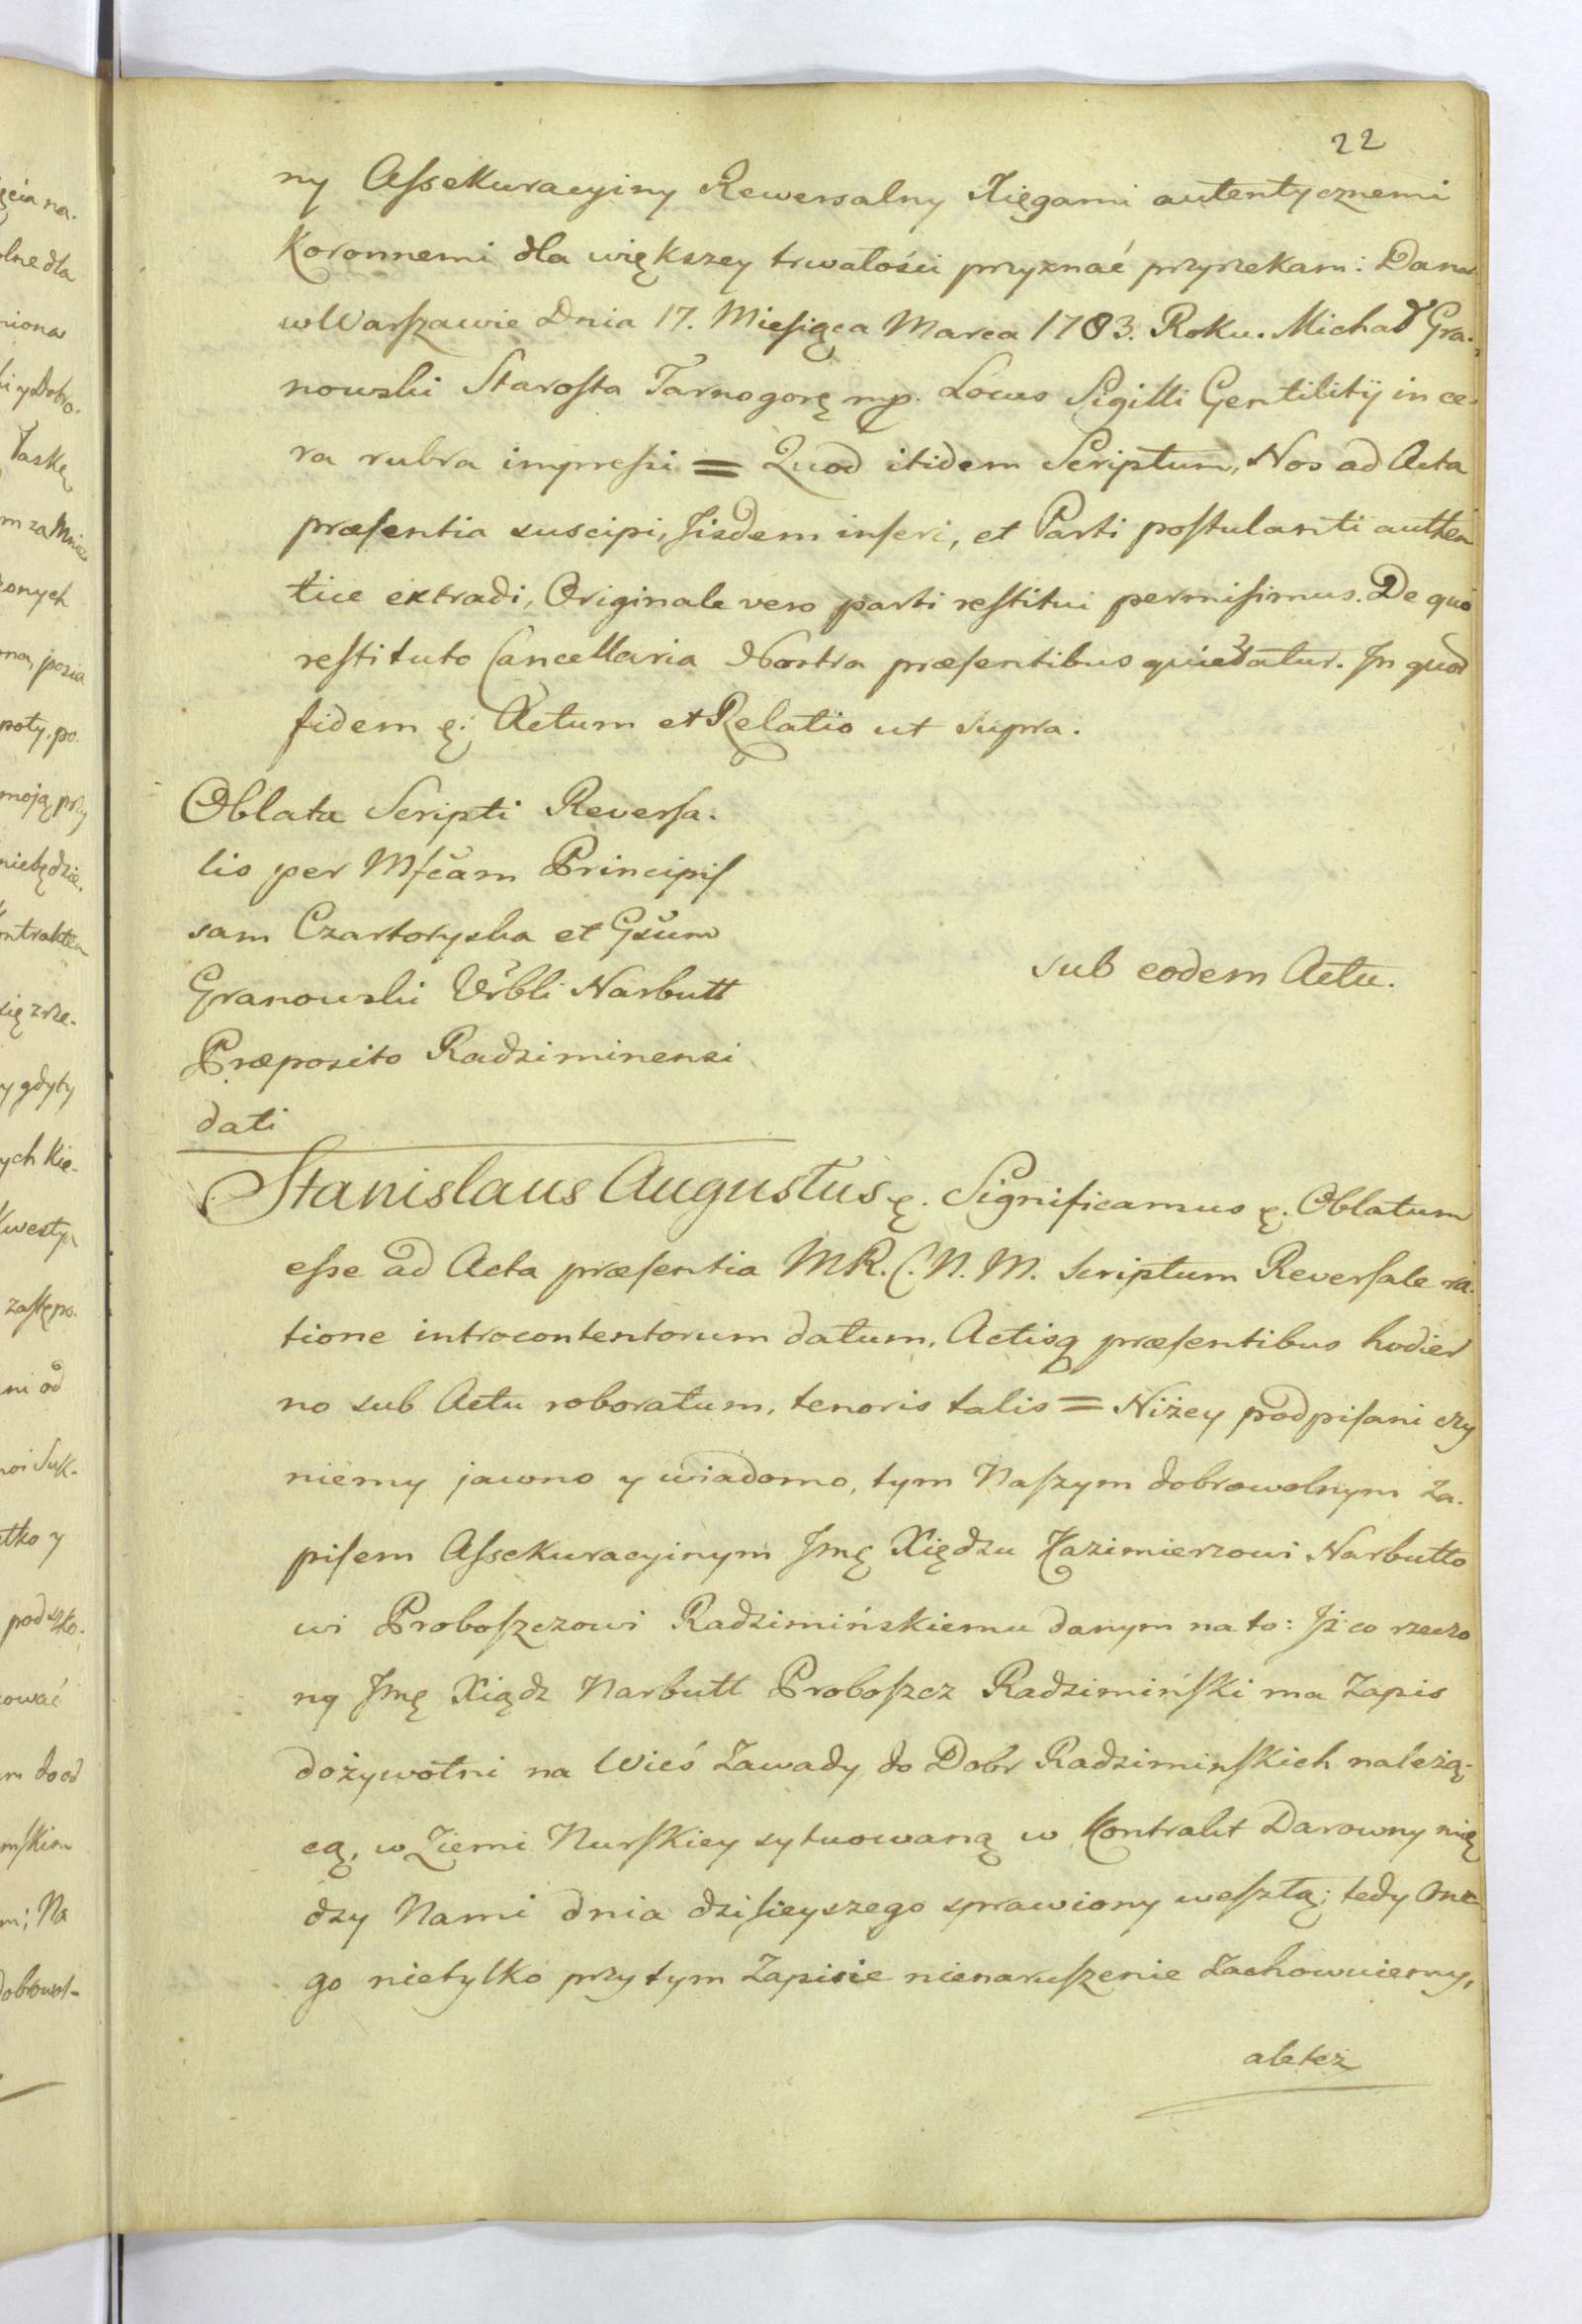 22
ny Assekuracyiny Rewersalny Xięgami autentycznemi
Koronnemi dla większey trwałości przyznać przyrzekam: Dan
w Warszawie Dnia 17. Miesiąca Marca 1783. Roku. Michał Gra-
nowski Starosta Tarnogorę mp. Locus Sigilli Gentilitÿ in ce-
ra rubra impressi = Quod itidem Scriptum, Nos ad Acta
præsentia suscipi, Iisdem inseri, et Parti postulanti authen
tice extradi, Originale vero parti restitui permisimus. De quo
restituto Cancellaria Nostra præsentibus quietatur. In quod
fidem ę: Actum et Relatio ut supra.
Oblata Scripti Reversa-
lis per Mfcam Principis
sam Czartoryska et Gsum
Granowski Vrbli Narbutt
Præposito Radziminensi
dati
sub eodem Actu.
Stanislaus Augustus ę. Significamus ę. Oblatum
esse ad Acta præsentia MR. C. N. M. Scriptum Reversale ra-
tione introcontentorum datum, Actisq præsentibus hodier
no sub Actu roboratum, tenoris talis = Niżey podpisani czy
niemy jawno y wiadomo, tym Naszym dobrowolnym Za-
pisem Assekuracyinym Jmę Xiędzu Kazimierzowi Narbutto
wi Proboszczowi Radzimińskiemu danym na to: Iż co rzeczo
ny Jmę Xiądz Narbutt Proboszcz Radzimiński ma Zapis
dożywotni na Wieś Zawady do Dobr Radziminskich należą-
cą, w Ziemi Nurskiey sytuowaną w Kontrakt Darowny mię
dzy Nami dnia dzisieyszego sprawiony weszłą; tedy One
go nietylko przy tym Zapisie nienaruszenie Zachowuiemy,
ale też